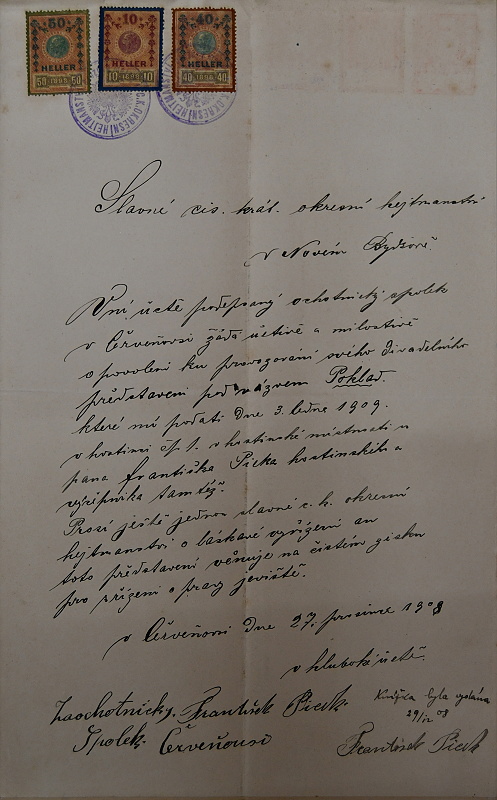 50 10 40
HELLER HELLER HELLER
50 1898 50 10 1898 10 40 1898 40
Slavné cis. král. okresní hejtmanství
v Novém Bydžově.
V ní úctě podepsaný ochotnický spolek
v Červeňovsi žádá uctivě a milostivě
o povolení ku provozování svého divadelního
představení pod názvem Poklad.
které mí podati Dne 3. ledna 1909.
v hostinci čp 1. v hostinské místnosti u
pana Františka Picka hostinského a
výčepníka tamtéž.
Prosí ještě jednou slavné c. k. okresní
hejtmanství o laskavé vyřízení an
toto představení věnuje na čistém zisku
pro zřízení opravy jeviště.
v Červeňovsi Dne 27. prosince 1908
v hluboké úctě.
Za ochotnický. František Picek.
Spolek. Červeňousi
Knížka byla vydána
29/12 08
František Picek